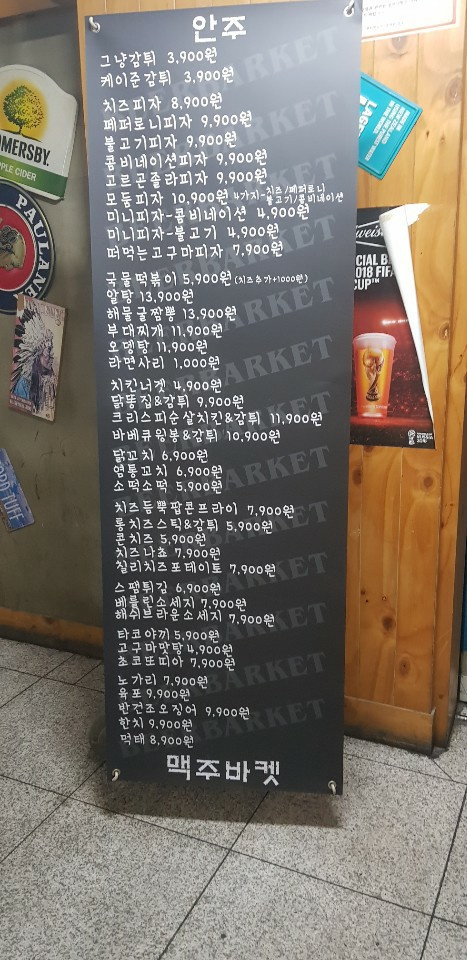 안주
그냥감튀 3,900원
케이준감튀 3,900원
치즈피자 8,900원
페퍼로니피자 9,900원
불고기피자 9,900원
콤비네이션피자 9,900원
고르곤졸라피자 9,900원
모듬피자 10,900원 4가지-치즈/페퍼로니
불고기/콤비네이션
미니피자-콤비네이션 4,900원
미니피자-불고기 4,900원
떠먹는고구마피자 7,900원
국물떡볶이 5,900원 (치즈추가+1000원)
알탕 13,900원
해물굴짬뽕 13,900원
부대찌개 11,900원
오뎅탕 11,900원
라면사리 1,000원
치킨너겟 4,900원
닭똥집&감튀 9,900원
크리스피순살치킨&감튀 11,900원
바베큐윙봉&감튀 10,900원
닭꼬치 6,900원
염통꼬치 6,900원
소떡소떡 5,900원
치즈듬뿍팝콘프라이 7,900원
롱치즈스틱&감튀 5,900원
콘치즈 5,900원
치즈나쵸 7,900원
칠리치즈포테이토 7,900원
스팸튀김 6,900원
베를린소세지 7,900원
해쉬브라운소세지 7,900원
타코야끼 5,900원
고구마맛탕 4,900원
초코또띠아 7,900원
노가리 7,900원
육포 9,900원
반건조오징어 9,900원
한치 9,900원
먹태 8,900원
맥주바켓
BEERBARKET
OMERSBY
APPLE CIDER
PAULANE
LAGE
CIAL B
2018 FIFA
CUP™